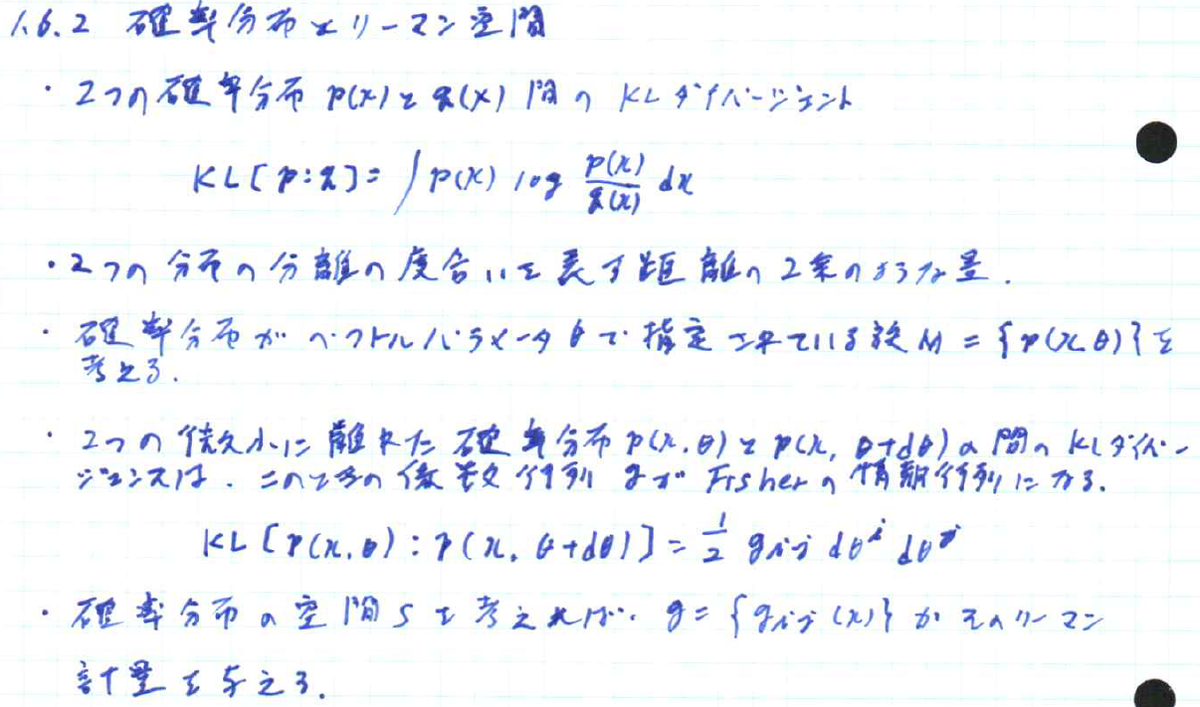 1.6.2 確率分布とリーマン空間
・2つの確率分布 p(x)と q(x) 間の KLダイバージェント
KL[p:q] = ∫p(x) log p(x)/q(x) dx
・2つの分布の分離の度合いを表す距離の2乗のような量.
・確率分布がベクトルパラメータθで指定されている族 M = {p(x,θ)}を
考える.
・2つの微小に離れた確率分布 p(x,θ)と p(x, θ+dθ)の間の KLダイバー
ジェンスは. このときの係数行列 gが Fisherの情報行列になる.
KL[p(x,θ):p(x,θ+dθ)] = 1/2 gij dθ^i dθ^j
・確率分布の空間Sを考えれば. g = {gij(x)}がそのリーマン
計量を与える.